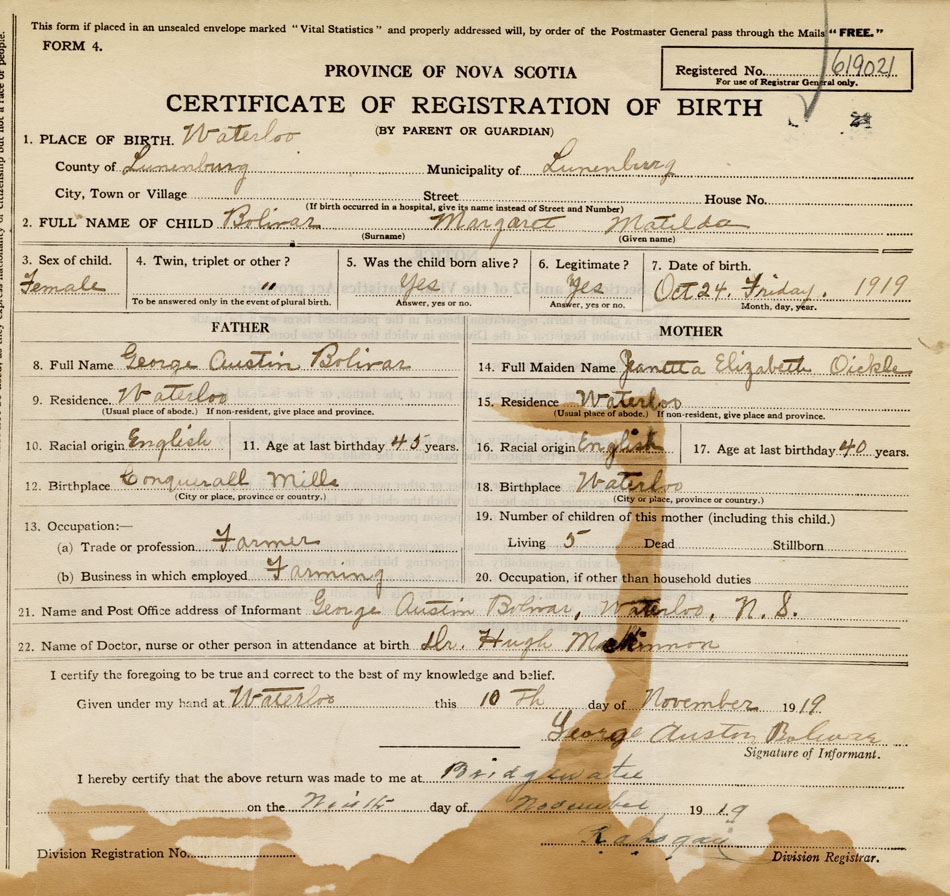 This form if placed in an unsealed envelope marked "Vital Statistics" and properly addressed will, by order of the Postmaster General pass through the Mails "FREE."
FORM 4.
PROVINCE OF NOVA SCOTIA
Registered No. 619021
For use of Registrar General only.
CERTIFICATE OF REGISTRATION OF BIRTH
(BY PARENT OR GUARDIAN)
1. PLACE OF BIRTH. Waterloo
County of Lunenburg Municipality of Lunenburg
City, Town or Village Street House No.
(If birth occurred in a hospital, give its name instead of Street and Number)
2. FULL NAME OF CHILD Bolivar Margaret Matilda
(Surname) (Given name)
3. Sex of child. 4. Twin, triplet or other? 5. Was the child born alive? 6. Legitimate? 7. Date of birth.
Female " Yes Yes Oct 24. Friday. 1919
To be answered only in the event of plural birth. Answer, yes or no. Answer, yes or no. Month, day, year.
FATHER MOTHER
8. Full Name George Austin Bolivar 14. Full Maiden Name Jeanetta Elizabeth Oickle
9. Residence. Waterloo 15. Residence Waterloo
(Usual place of abode.) If non-resident, give place and province. (Usual place of abode.) If non-resident, give place and province.
10. Racial origin English 11. Age at last birthday 45 years. 16. Racial origin English 17. Age at last birthday 40 years.
12. Birthplace Conquerall Mills 18. Birthplace Waterloo
(City or place, province or country.) (City or place, province or country.)
13. Occupation:— 19. Number of children of this mother (including this child.)
(a) Trade or profession Farmer Living 5 Dead Stillborn
(b) Business in which employed Farming 20. Occupation, if other than household duties
21. Name and Post Office address of Informant George Austin Bolivar, Waterloo, N. S.
22. Name of Doctor, nurse or other person in attendance at birth Dr. Hugh MacKinnon
I certify the foregoing to be true and correct to the best of my knowledge and belief.
Given under my hand at Waterloo this 10 Th day of November 1919
George Austin Bolivar
Signature of Informant.
I hereby certify that the above return was made to me at Bridgewater
on the day of November 1919
Division Registration No. Division Registrar.